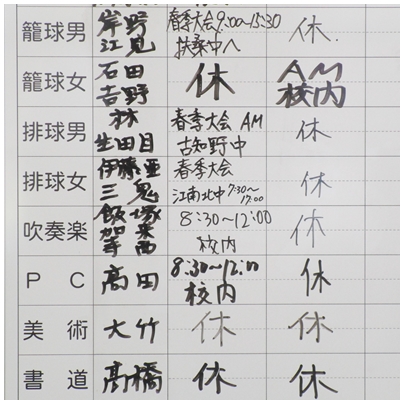 籠球男 岸野 春季大会9:00~15:30 休
江見 扶桑中へ
籠球女 石田 休 AM
吉野 校内
排球男 林 春季大会 AM 休
生田目 古知野中
排球女 伊藤亜 春季大会 休
三鬼 江南北中 7:30~17:00
吹奏楽 飯塚 8:30~12:00 休
校内
PC 高田 8:30~12:00 休
校内
美術 大竹 休 休
書道 髙橋 休 休